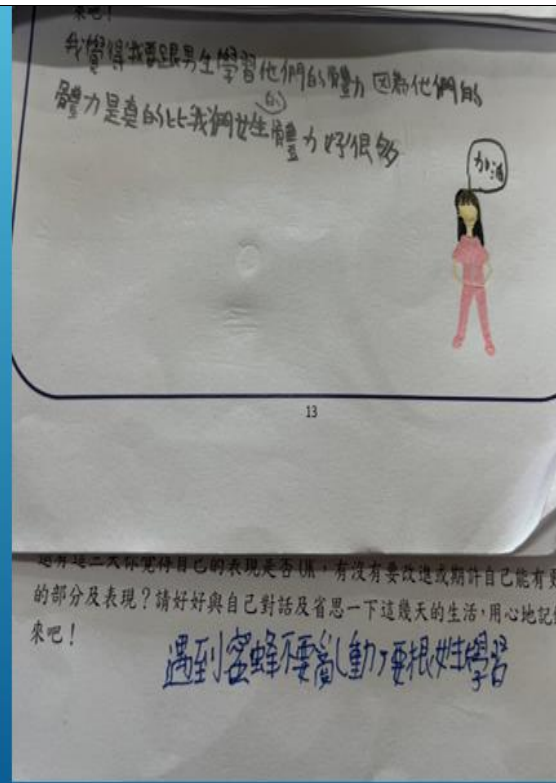 來吧！
我覺得我要跟男生學習他們的體力 因為他們的
體力是真的比我們女生的體力好很多
加油
13
這三天你覺得自己的表現是否OK，有沒有要改進或期許自己能有更
的部分及表現？請好好與自己對話及省思一下這幾天的生活，用心地記
來吧！
遇到蜜蜂不要亂動，要跟女生學習